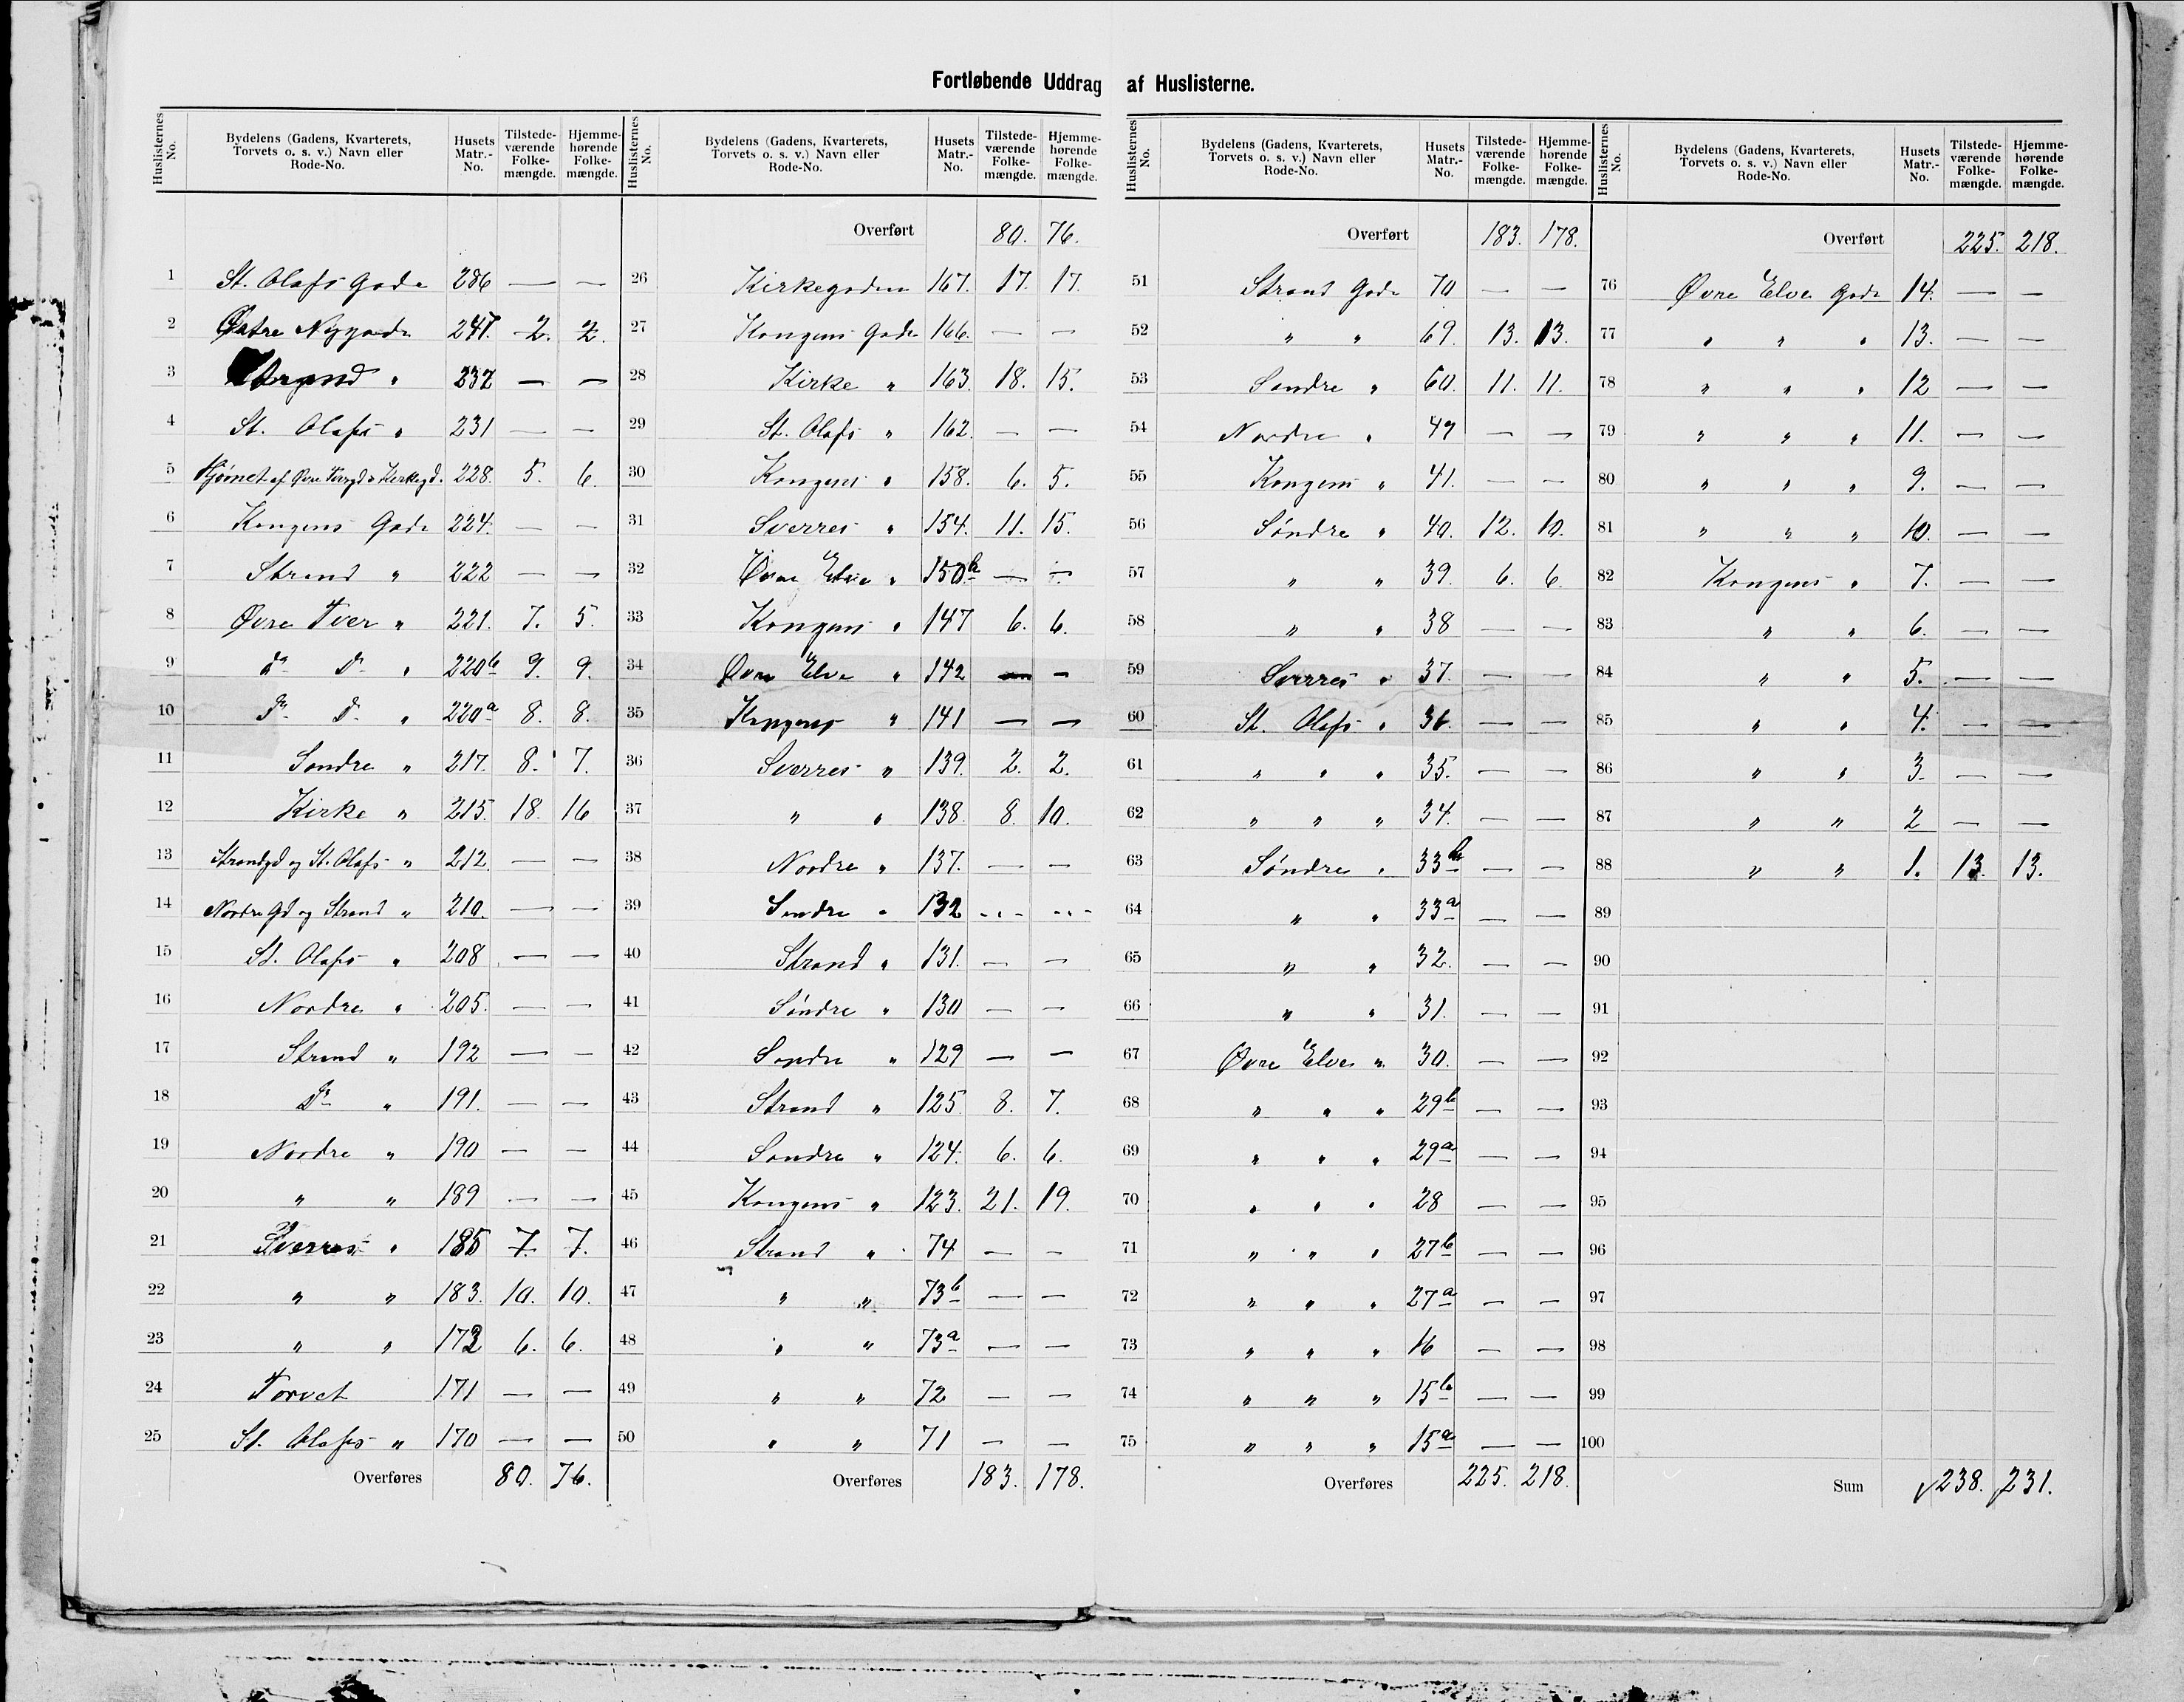 Fortløbende Uddrag af Huslisterne.
Huslisternes No. Bydelens (Gadens, Kvarterets, Torvets o. s. v.) Navn eller Rode-No. Husets Matr.-No. Tilstedeværende Folkemængde. Hjemmehørende Folkemængde.
1 St. Olafs Gade 286 — —
2 Østre Nygade 247. 2. 2.
3 Strand " 232 — —
4 St. Olafs " 231 — —
5 Hjørnet af Øvre Tvergd & Kirkegd. 228. 5. 6.
6 Kongens Gade 224. — —
7 Strand " 222 — —
8 Øvre Tver " 221. 7. 5.
9 Do Do " 220b 9. 9.
10 Do Do " 220a 8. 8.
11 Søndre " 217. 8. 7.
12 Kirke " 215. 18. 16
13 Strandgd og St. Olafs " 212. — —
14 Nordre Gd og Strand " 210. — —
15 St. Olafs " 208 — —
16 Nordre " 205. — —
17 Strand " 192 — —
18 Do " 191. — —
19 Nordre " 190 — —
20 " " 189 — —
21 Sverres " 185 7. 7.
22 " " 183. 10. 10.
23 " " 173 6. 6.
24 Torvet 171 — —
25 St. Olafs " 170 — —
Overføres 80. 76.
Huslisternes No. Bydelens (Gadens, Kvarterets, Torvets o. s. v.) Navn eller Rode-No. Husets Matr.-No. Tilstedeværende Folkemængde. Hjemmehørende Folkemængde.
Overført 80. 76.
26 Kirkegaden 167. 17. 17.
27 Kongens Gade 166. — —
28 Kirke " 163. 18. 15.
29 St. Olafs " 162. — —
30 Kongens " 158. 6. 5.
31 Sverres " 154. 11. 15.
32 Øvre Elve " 150b — —
33 Kongens " 147 6. 6.
34 Øvre Elve " 142 — —
35 Kongens " 141 — —
36 Sverres " 139. 2. 2.
37 " " 138. 8. 10.
38 Nordre " 137. — —
39 Søndre " 132 — —
40 Strand " 131. — —
41 Søndre " 130 — —
42 Søndre " 129 — —
43 Strand " 125. 8. 7.
44 Søndre " 124. 6. 6.
45 Kongens " 123. 21. 19.
46 Strand " 74 — —
47 " " 73b — —
48 " " 73a — —
49 " " 72 — —
50 " " 71 — —
Overføres 183. 178.
Huslisternes No. Bydelens (Gadens, Kvarterets, Torvets o. s. v.) Navn eller Rode-No. Husets Matr.-No. Tilstedeværende Folkemængde. Hjemmehørende Folkemængde.
Overført 183. 178.
51 Strand Gade 70 — —
52 " " 69. 13. 13.
53 Søndre " 60. 11. 11.
54 Nordre " 49 — —
55 Kongens " 41. — —
56 Søndre " 40. 12. 10.
57 " " 39. 6. 6.
58 " " 38 — —
59 Sverres " 37. — —
60 St. Olafs " 36. — —
61 " " " 35. — —
62 " " " 34. — —
63 Søndre " 33b — —
64 " " 33a — —
65 " " 32. — —
66 " " 31. — —
67 Øvre Elve " 30. — —
68 " " " 29b — —
69 " " " 29a — —
70 " " " 28 — —
71 " " " 27b — —
72 " " " 27a — —
73 " " " 16 — —
74 " " " 15b — —
75 " " " 15a — —
Overføres 225. 218.
Huslisternes No. Bydelens (Gadens, Kvarterets, Torvets o. s. v.) Navn eller Rode-No. Husets Matr.-No. Tilstedeværende Folkemængde. Hjemmehørende Folkemængde.
Overført 225. 218.
76 Øvre Elve Gade 14. — —
77 " " " 13. — —
78 " " " 12 — —
79 " " " 11. — —
80 " " " 9. — —
81 " " " 10. — —
82 Kongens " 7. — —
83 " " 6. — —
84 " " 5. — —
85 " " 4. — —
86 " " 3. — —
87 " " 2 — —
88 " " 1. 13. 13.
89
90
91
92
93
94
95
96
97
98
99
100
Sum √238. √231.